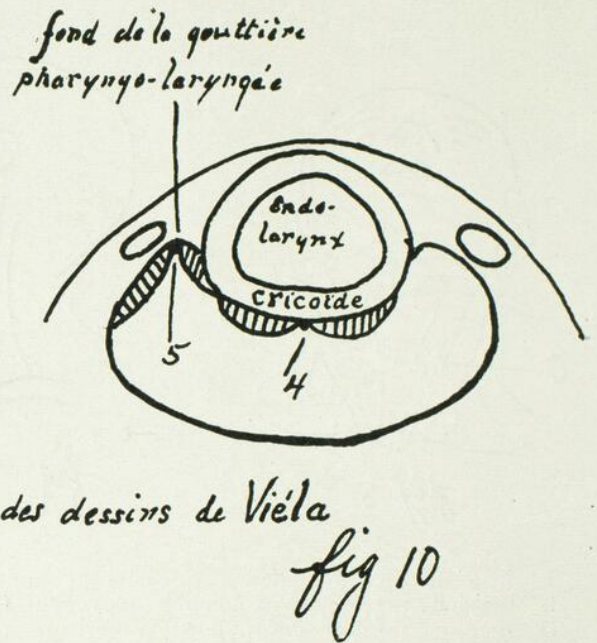 fond de la gouttière
pharyngo-laryngée
Endo-
larynx
cricoïde
5
4
des dessins de Viéla
fig 10